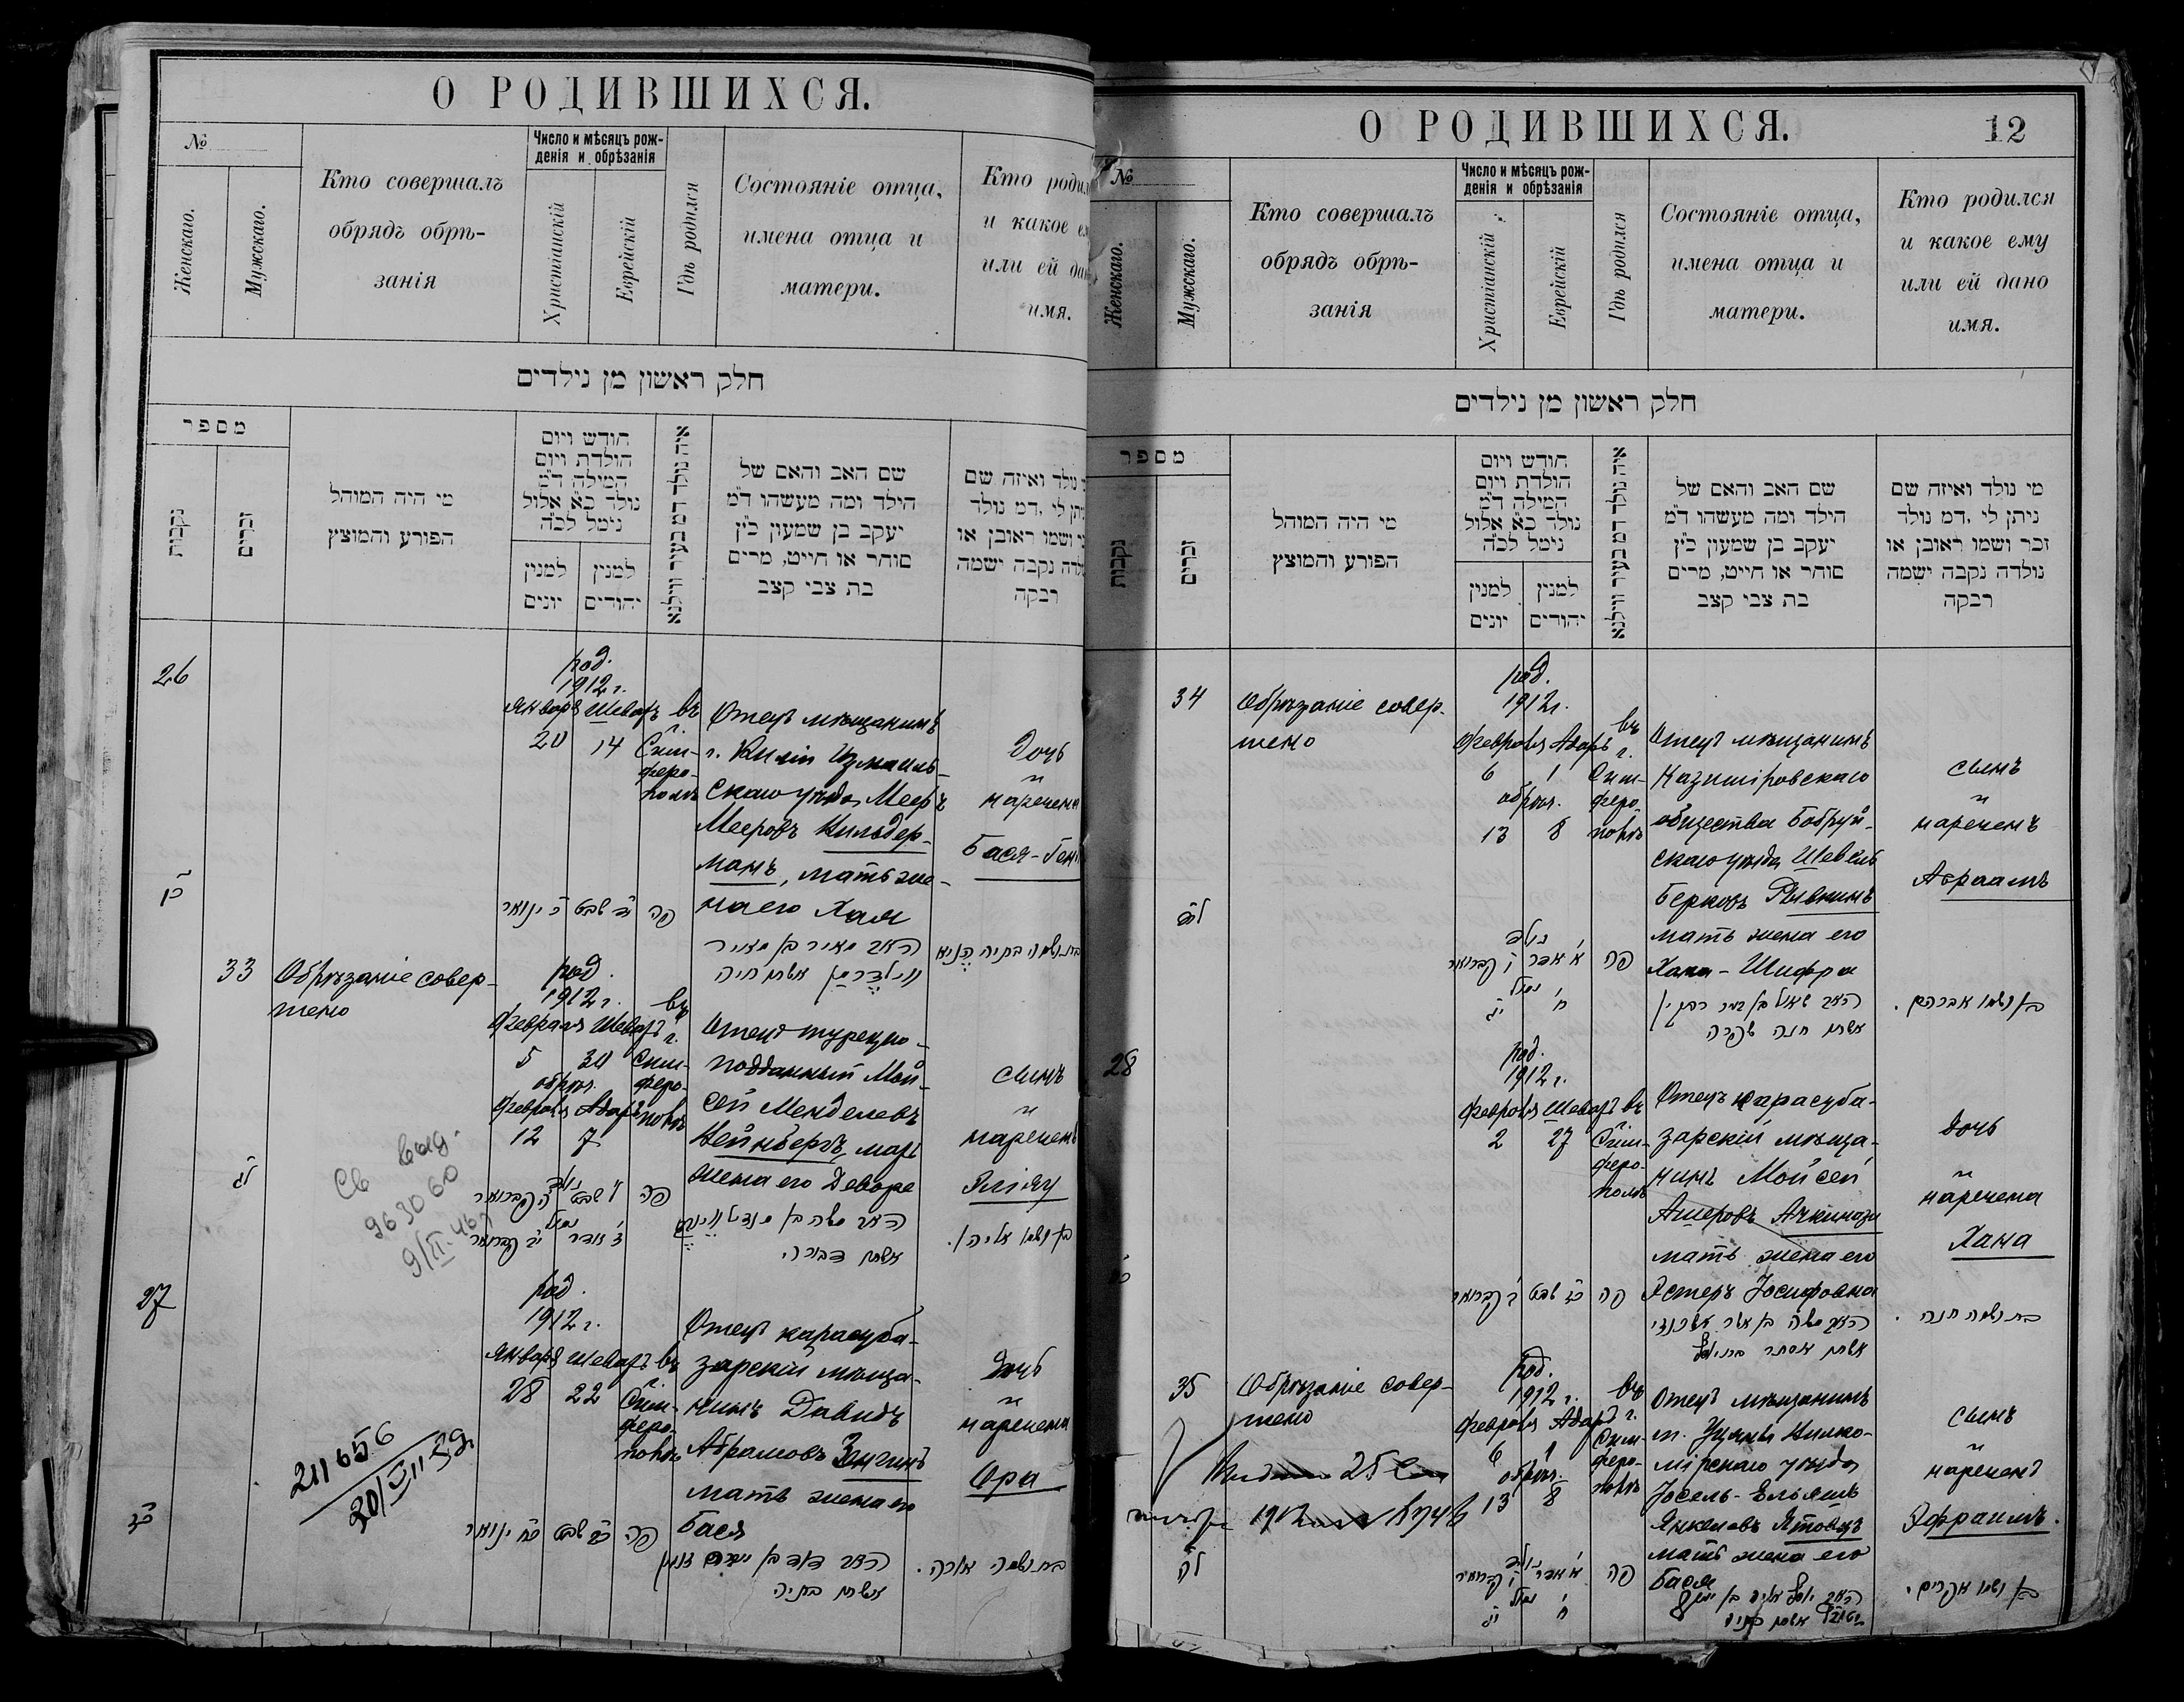 О РОДИВШИХСЯ.
№
Женскаго.
Мужскаго.
Кто совершалъ
обрядъ обрѣ-
занія
Число и мѣсяцъ рож-
денія и обрѣзанія
Христіанскій
Еврейскій
Гдѣ родился
Состояніе отца,
имена отца и
матери.
Кто
и какое
или ей
имя.
חלק ראשון מן נילדים
מספר
נקבות
זכרים
מי היה המוהל
הפורע והמוצץ
חודש ויום
הולדת ויום
המילה ד״מ
נולד כ״א אלול
נימל לכ״ה
למנין יונים
למנין יהודים
איה נולד דמ בעיר ווילנא
שם האב והאם של
הילד ומה מעשהו ד״מ
יעקב בן שמעון כ״ץ
סוחר או חייט, מרים
בת צבי קצב
נולד ואיזה שם
ניתן לי .דמ נולד
ושמו ראובן או
נקבה ישמה
רבקה
26
род.
1912 г.
Января Шеватъ
20 14
въ г. Сим-
феро-
полѣ
Отецъ мѣщанинъ
г. Киліи Измаиль-
скаго уѣзда Мееръ
Мееровъ Кильдер-
манъ, мать же-
на его Хая
Дочь
наречена
Бася-
כ׳ ינואר
י״ד שבט
פה
האב מאיר בן מאיר
אשתו חיה
33
Обрѣзаніе совер-
шено
род.
1912 г.
Февраля Шеватъ
5 30
обрѣз.
Февраля Адаръ
12 7
въ г. Сим-
феро-
полѣ
Отецъ турецко-
подданный Мои-
сей Менделевъ
Вейнбергъ, мать
жена его Девора
сынъ
нареченъ
Эліяу
פה
האב משה בן מנדיל
אשתו דבורה
בן ושמו אליהו.
Св выд.
963060
9/II-46г
27
род.
1912 г.
Января Шеватъ
28 22
въ г. Сим-
феро-
полѣ
Отецъ карасуба-
зарскій мѣща-
нинъ Давидъ
Абрамовъ Зенгинъ
мать жена его
Бася
Дочь
наречена
Ора
פה
האב דוד בן
אשתו בתיה
בת ושמה אורה.
211656
20/VII 39
О РОДИВШИХСЯ.
12
№
Женскаго.
Мужскаго.
Кто совершалъ
обрядъ обрѣ-
занія
Число и мѣсяцъ рож-
денія и обрѣзанія
Христіанскій
Еврейскій
Гдѣ родился
Состояніе отца,
имена отца и
матери.
Кто родился
и какое ему
или ей дано
имя.
חלק ראשון מן נילדים
מספר
נקבות
זכרים
מי היה המוהל
הפורע והמוצץ
חודש ויום
הולדת ויום
המילה ד״מ
נולד כ״א אלול
נימל לכ״ה
למנין יונים
למנין יהודים
איה נולד דמ בעיר ווילנא
שם האב והאם של
הילד ומה מעשהו ד״מ
יעקב בן שמעון כ״ץ
סוחר או חייט, מרים
בת צבי קצב
מי נולד ואיזה שם
ניתן לי .דמ נולד
זכר ושמו ראובן או
נולדה נקבה ישמה
רבקה
34
Обрѣзаніе совер-
шено
род.
1912 г.
Февраля Адаръ
6 1
обрѣз.
13 8
въ г. Сим-
феро-
полѣ
Отецъ мѣщанинъ
Казимiровскаго
общества Бобруй-
скаго уѣзда Шевель
Берковъ Рывкинъ
мать жена его
Хана-Шифра
сынъ
нареченъ
Авраамъ
פה
אשתו חנה שפרה
בן ושמו אברהם.
28
род.
1912 г.
Февраля Шеватъ
2 27
въ г. Сим-
феро-
полѣ
Отецъ карасуба-
зарскій мѣща-
нинъ Мойсей
Ашеровъ Ачкинази
мать жена его
Эстеръ Іосифовна
дочь
наречена
Хана
פה
האב משה בן אשר אשכנזי
אשתו אסתר
בת ושמה חנה.
35
Обрѣзаніе совер-
шено
род.
1912 г.
Февраля Адаръ
6 1
обрѣз.
13 8
въ г. Сим-
феро-
полѣ
Отецъ мѣщанинъ
м. Уцяны Вилко-
мірскаго уѣзда
Іосель-Ельяшъ
Янкелевъ Ятовцъ
мать жена его
Бася
сынъ
нареченъ
Эфраимъ.
פה
האב יוסף אליה בן
בן ושמו אפרים.